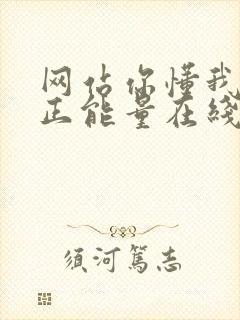 网站你懂我
正能量在线
须河篤志